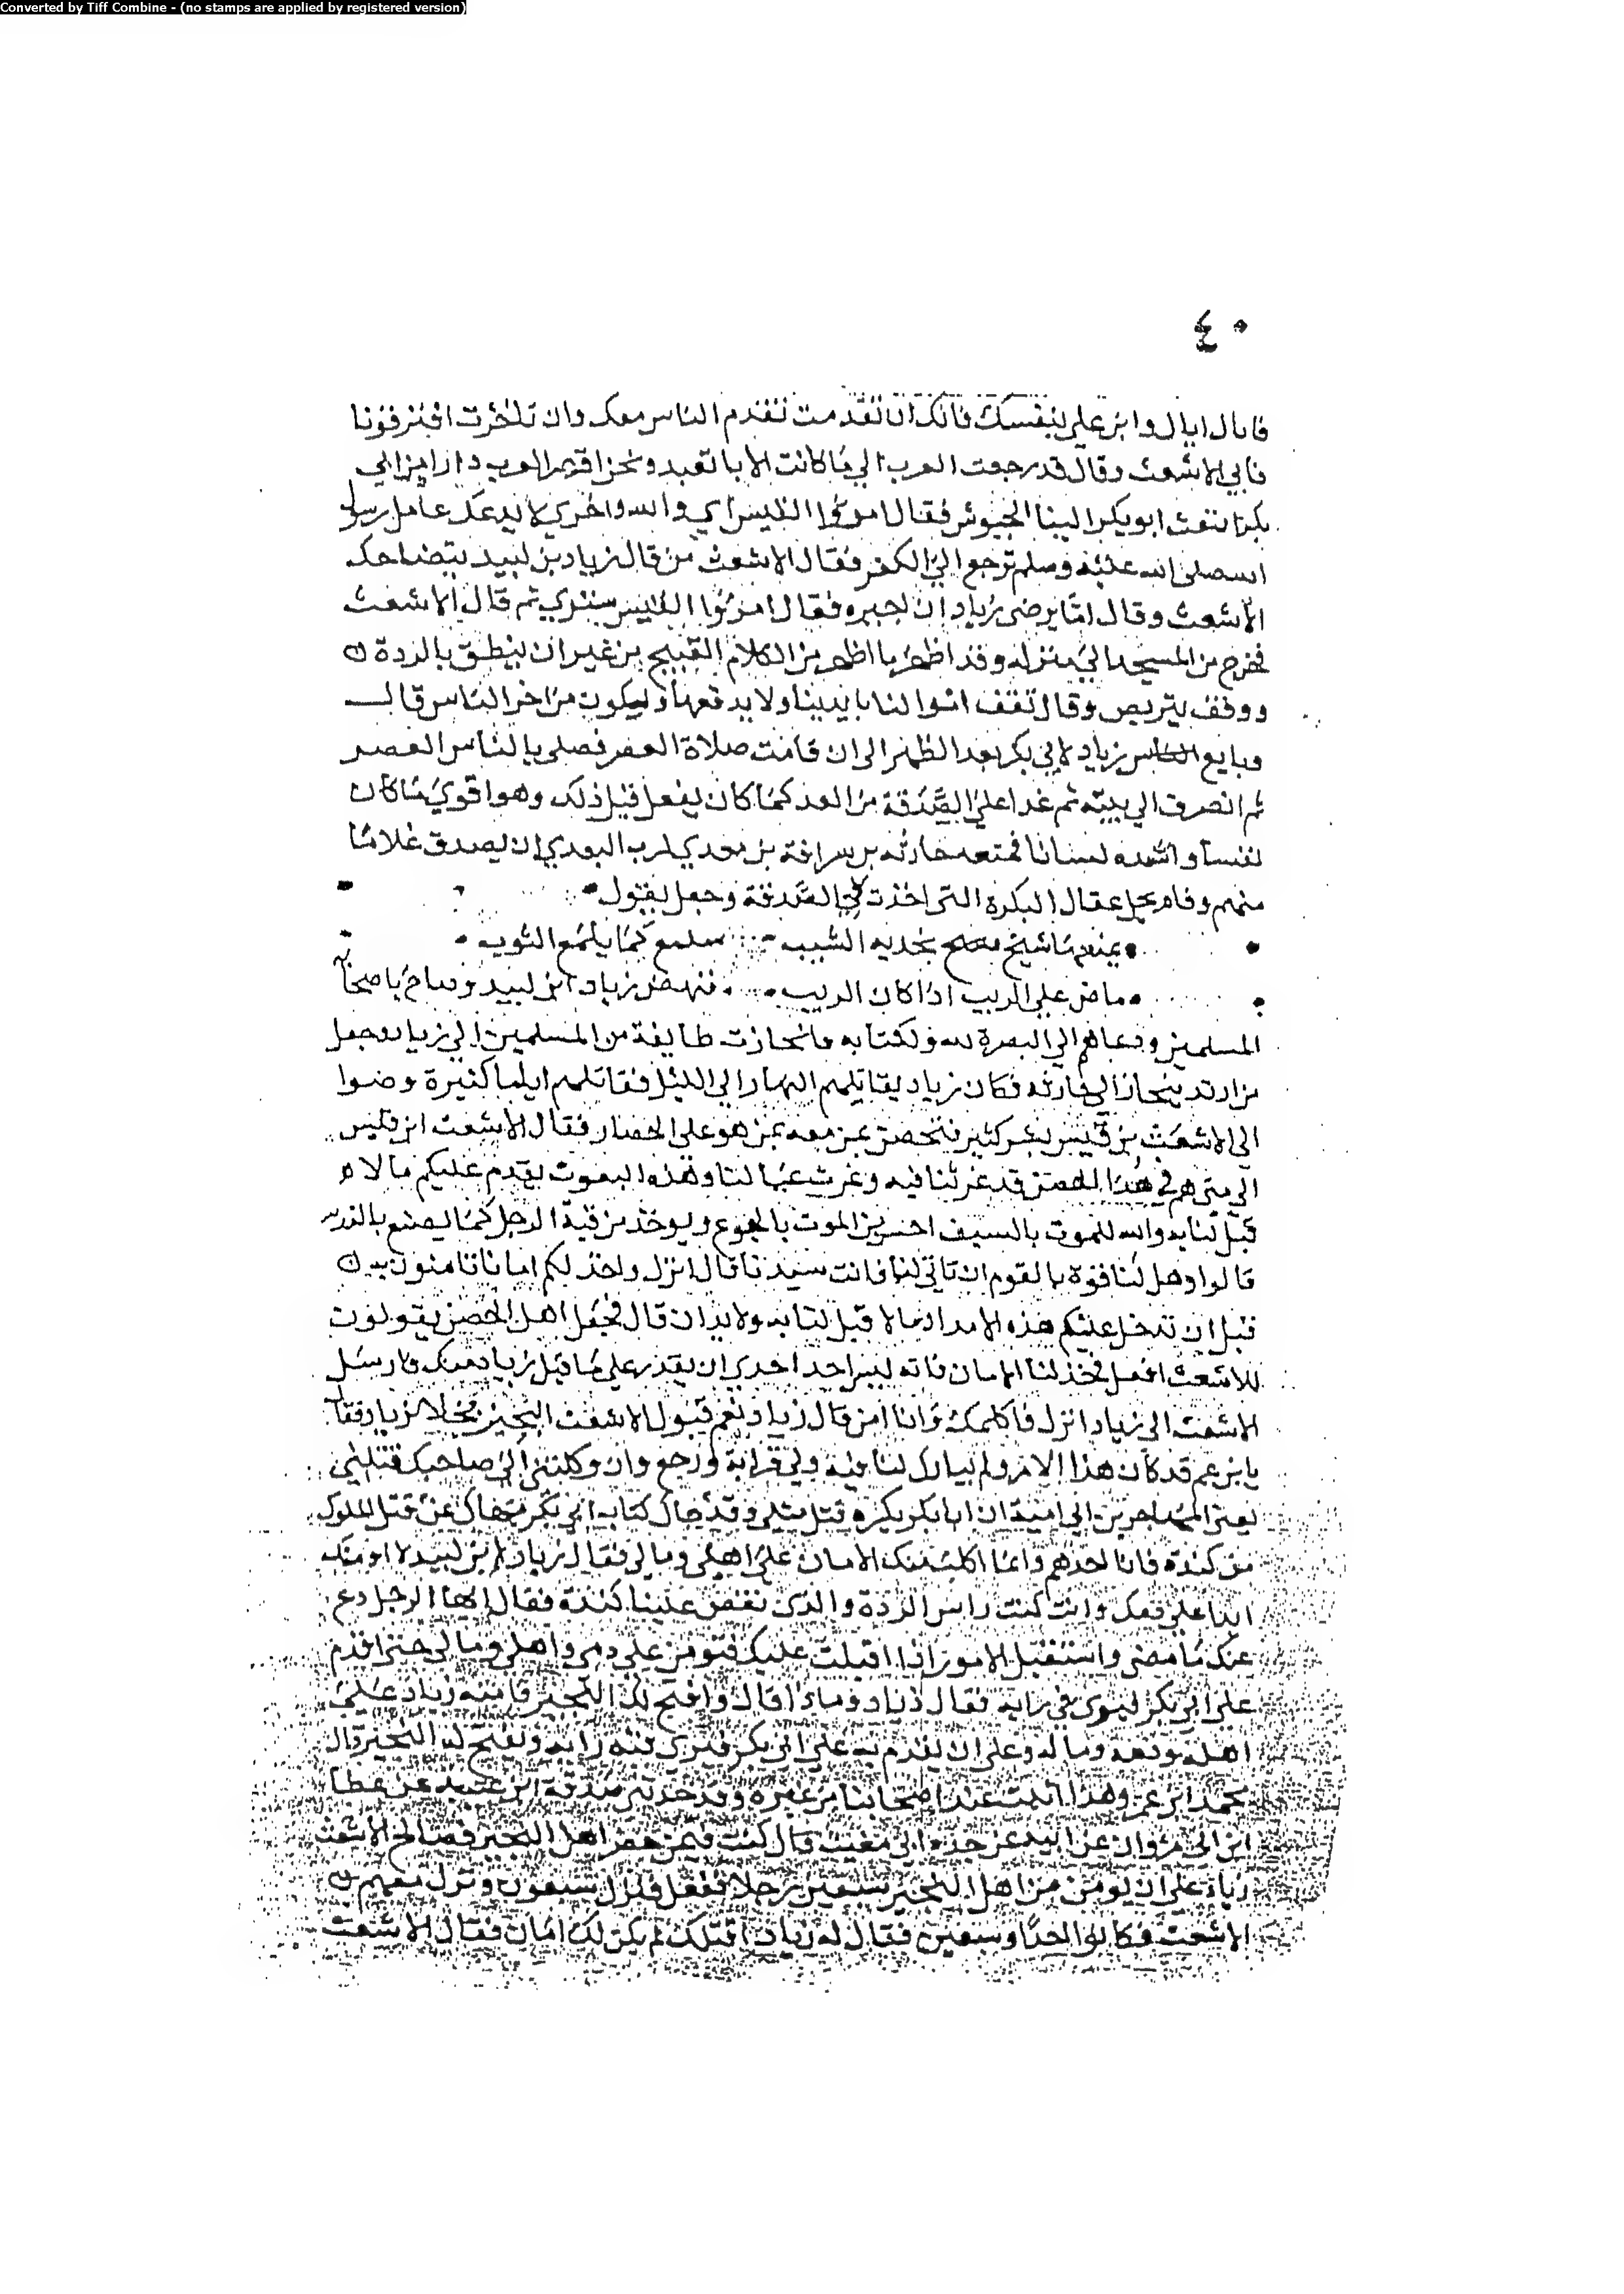 Converted by Tiff Combine - (no stamps are applied by registered version)
٤٠
على نفسك فانك ان تقدمت تقدم الناس معك وان تاخرت افترقوا
فابى الاشعث وقال قد رجعت العرب الى ما كانت الابا تعبد ونحن اقصى العرب دارا من ابي
بكر ايبعث ابو بكر الينا الجيوش فقال امرؤ القيس اي والله واخرى لا يدعك عامل رسول
الله صلى الله عليه وسلم ترجع الى الكفر فقال الاشعث من قال زياد بن لبيد فتضاحك
الاشعث وقال اما يرضى زياد ان اجيره فقال امرؤ القيس سترى ثم قال الاشعث
فخرج من المسجد الى منزله وقد اظهر ما اظهر من الكلام القبيح من غير ان ينطق بالردة
ووقف يتربص وقال تقف اموالنا بايدينا ولا ندفعها ونكون من اخر الناس قال
وبايع زياد لابي بكر بعد الظهر الى ان قامت صلاة العصر فصلى بالناس العصر
ثم انصرف الى بيته ثم غدا على الصدقة من الغد كما كان يفعل قبل ذلك وهو اقوى ما كان
نفسا واشده لسانا فمنعه حارثة بن سراقة بن معدي كرب ان يصدق غلاما
منهم وقام يحل عقال البكرة التي اخذت في الصدقة وجعل يقول
يمنعها شيخ بخديه الشيب ملمع كما يلمع الثوب
ماض على الريب اذا كان الريب فنهض زياد ابن لبيد وصاح باصحابه
المسلمين ودعاهم الى النصرة لله ولكتابه فانحازت طايفة من المسلمين الى زياد وجعل
من ارتد ينحاز الى حارثة فكان زياد يقاتلهم النهار الى الليل فقاتلهم اياما كثيرة وضوا
الى الاشعث بن قيس بشر كثير فتحصن بمن معه ممن هو على الحصار فقال الاشعث ابن قيس
الى متى هم في هذا الحصن قد غرثنا فيه وغرث عيالنا وهذه البعوث تقدم عليكم ما لا
قبل لنا به والله للموت بالسيف احسن من الموت بالجوع ويوخذ برقبة الرجل كما يصنع
قالوا وهل لنا قوة بالقوم ان تاتي لنا فانت سيدنا قال انزل واخذ لكم امانا تامنون به
قبل ان تدخل عليكم هذه الامداد بما لا قبل لنا به ولا يدان قال فجعل اهل الحصن يقولون
للاشعث افعل فخذ لنا الامان فانه ليس احد احرى ان يقدر على ما قبل زياد منك فارسل
الاشعث الى زياد انزل فاكلمك وانا امن قال زياد نعم الاشعث من النجير فخلا بزياد فقال
يا بن عم قد كان هذا الامر ولم يبارك لنا فيه ولي قرابة ورحم وان وكلتني الى صاحبك قتلني
يعني المهاجرين ابي امية ان ابا بكر يكره قتل مثلي وقد جاك كتاب ابي بكر ينهاك عن قتل الملوك
من كندة فانا احدهم وانما اطلب منك الامان على اهلي ومالي فقال زياد بن لبيد لا اومنك
ابدا على دمك وانت كنت راس الردة والذي نقض علينا كندة فقال ايها الرجل دع
عنك ما مضى واستقبل الامور اذا اقبلت عليك فتومن على دمي واهلي ومالي حتى اقدم
على ابي بكر فيرى في رايه فقال زياد وماذا قال وافتح لك النجير فامنه زياد على
اهله ودمه وماله وعلى ان يقدم به على ابي بكر فيرى فيه رايه ويفتح له النجير قال
محمد ابن عمر وهذا اثبت عند اصحابنا من غيره وقد حدثني صدقة ابن عتبة عن عطا
ابن ابي مروان عن ابيه عن جده ابي مغيث قال كنت فيمن حضر اهل النجير فصالح الاشعث
زياد على ان يومن من اهل النجير سبعين رجلا ففعل فنزل سبعون ونزل معهم
الاشعث فكانوا احدا وسبعين فقال له زياد اقتلك لم يكن لك امان فقال الاشعث